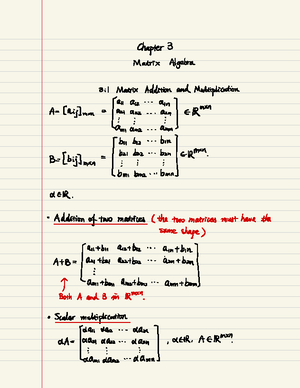 Chapter 3
Matrix Algebra
3.1 Matrix Addition and Multiplication
A = [aij]mxn = [a11 a12 ··· a1n
a21 a22 ··· a2n
⋮ ⋮ ⋮
am1 am2 ··· amn] ∈ ℝ^mxn
B = [bij]mxn = [b11 b12 ··· b1n
b21 b22 ··· b2n
⋮ ⋮ ⋮
bm1 bm2 ··· bmn] ∈ ℝ^mxn.
α ∈ ℝ.
• Addition of two matrices (the two matrices must have the
same shape)
A+B = [a11+b11 a12+b12 ··· a1n+b1n
a21+b21 a22+b22 ··· a2n+b2n
⋮
am1+bm1 am2+bm2 ··· amn+bmn]
↑
Both A and B in ℝ^mxn.
• Scalar multiplication
αA = [αa11 αa12 ··· αa1n
αa21 αa22 ··· αa2n
⋮ ⋮ ⋮
αam1 αam2 ··· αamn] , α∈ℝ, A∈ℝ^mxn.